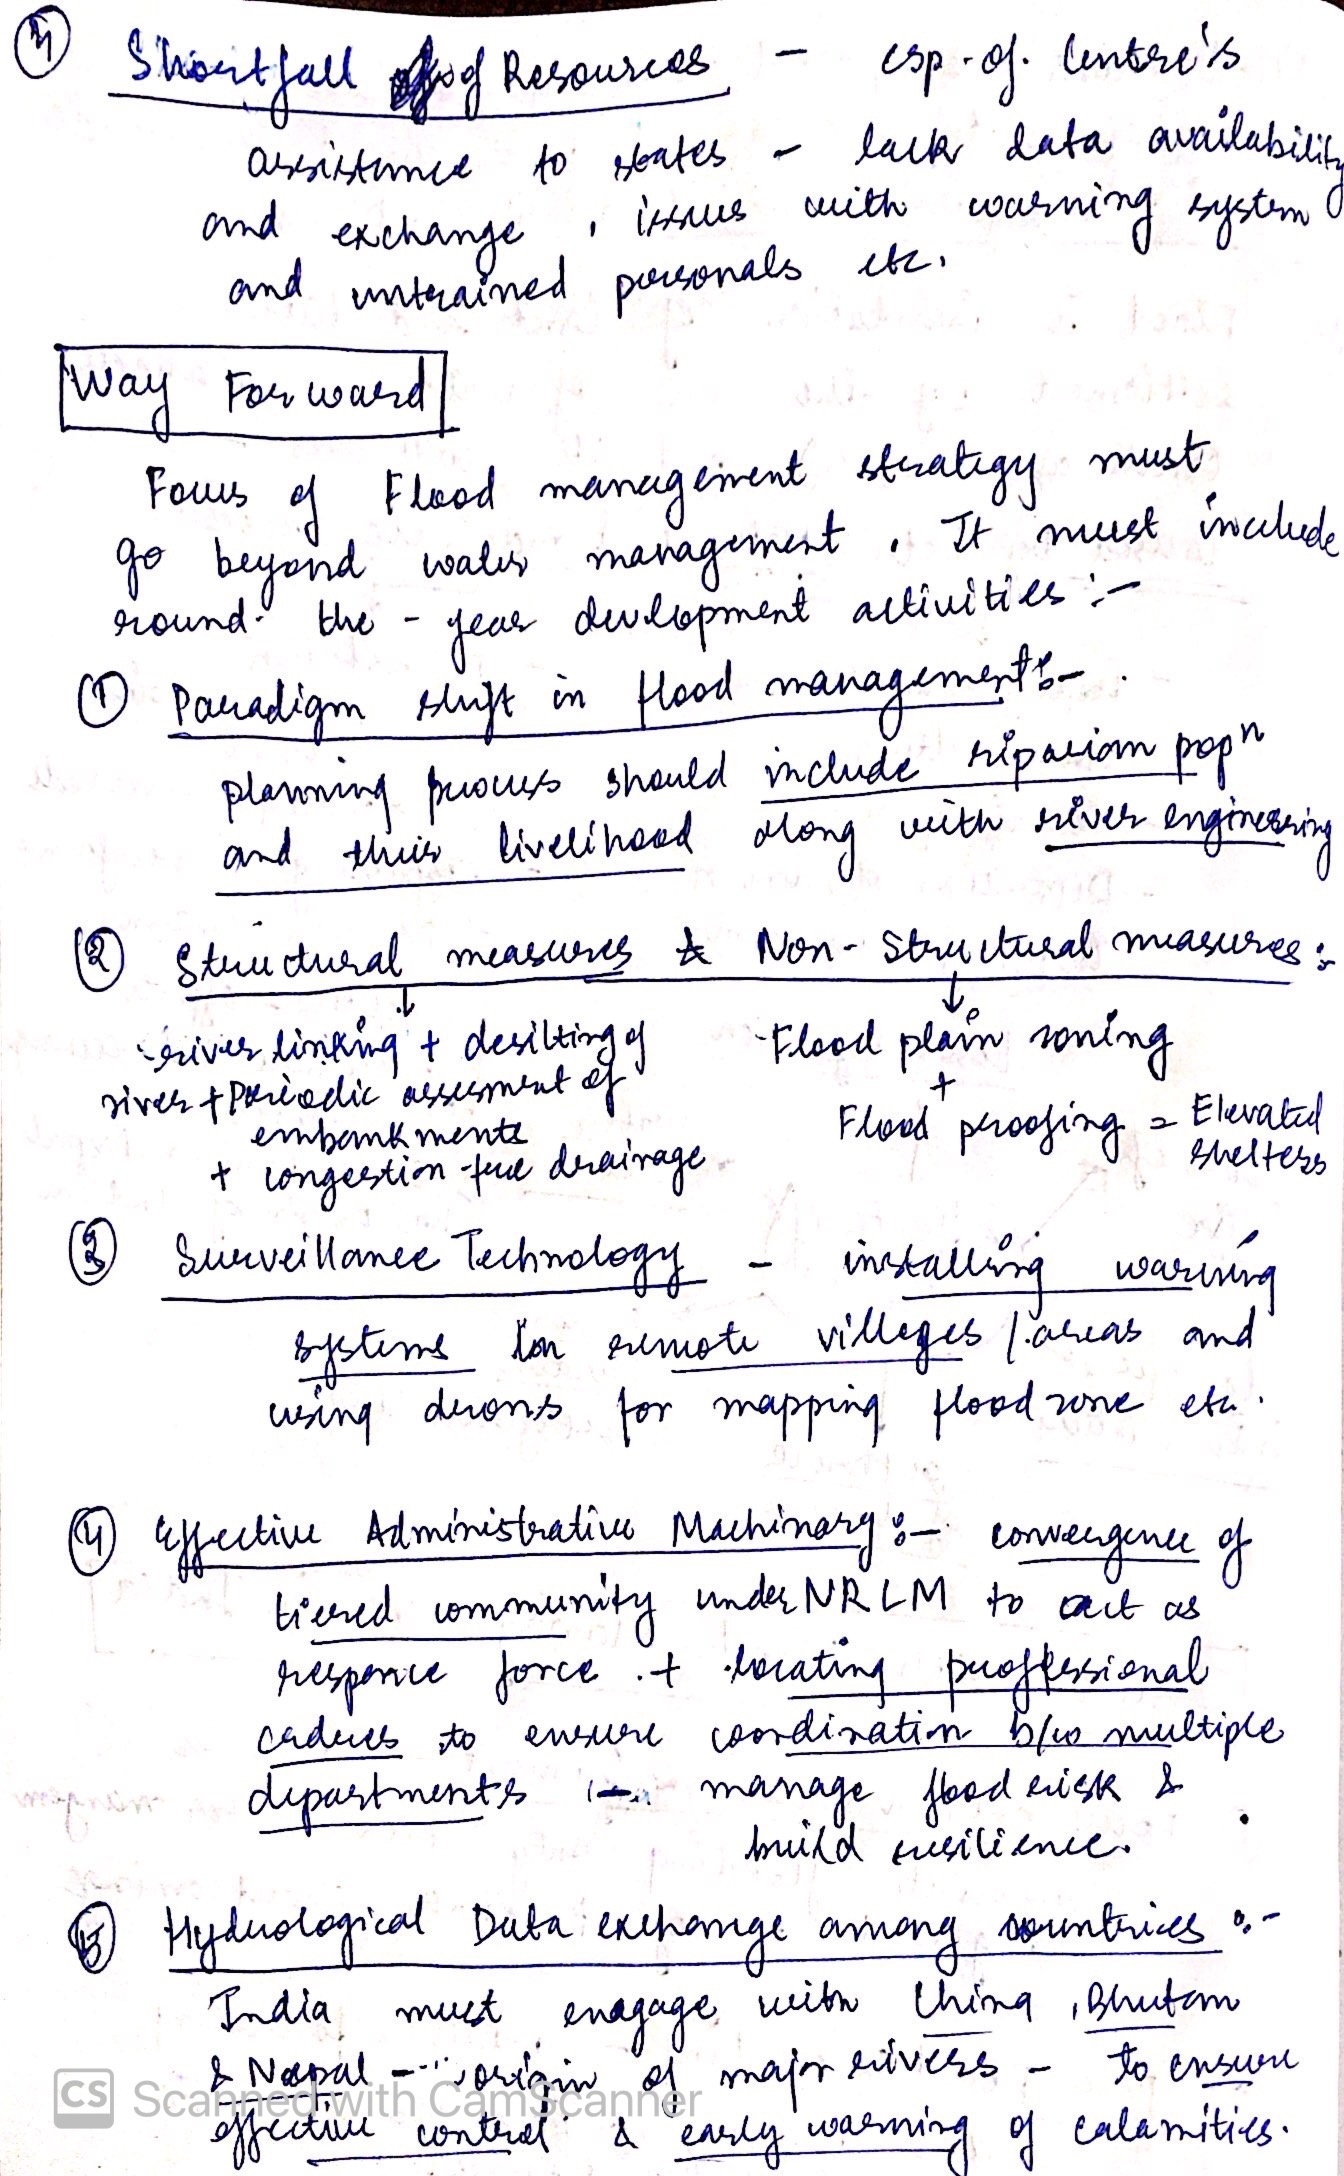 4 Shortfall of Resources - esp. of. Centre's
assistance to states - lack data availability
and exchange, issues with warning system
and untrained personals etc.
Way Forward
Focus of Flood management strategy must
go beyond water management. It must include
round-the-year development activities :-
1 Paradigm shift in flood management :-
planning process should include riparian popn
and their livelihood along with river engineering
2 Structural measures & Non-Structural measures :-
↓ ↓
river linking + desilting of
river + Periodic assesment of
embankments
+ congestion-free drainage
Flood plain zoning
+
Flood proofing = Elevated
shelters
3 Surveillance Technology - installing warning
systems in remote villages / areas and
using drons for mapping flood zone etc.
4 Effective Administrative Machinary :- convergence of
tiered community under NRLM to act as
responce force. + locating proffessional
cadres to ensure coordination b/w multiple
departments :- manage flood risk &
build resilience.
5 Hydrological Data exchange among countries :-
India must enagage with China, Bhutan
& Nepal - origin of major rivers - to ensure
effective control & early warning of calamities.
CS Scanned with CamScanner